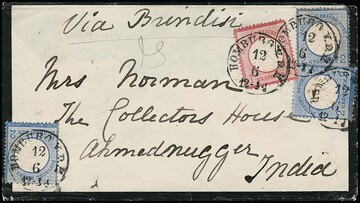 Via Brindisi
Mrs Norman
The Collectors House
Ahmednugger
India
HOMBURG V.D.H.
12
6
HOMBURG V.D.H.
12
6
12
6
12
6